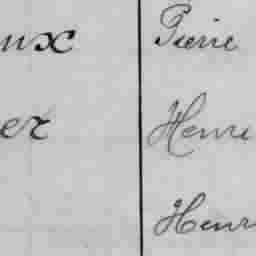 ux Pierre
er Henri
Henri